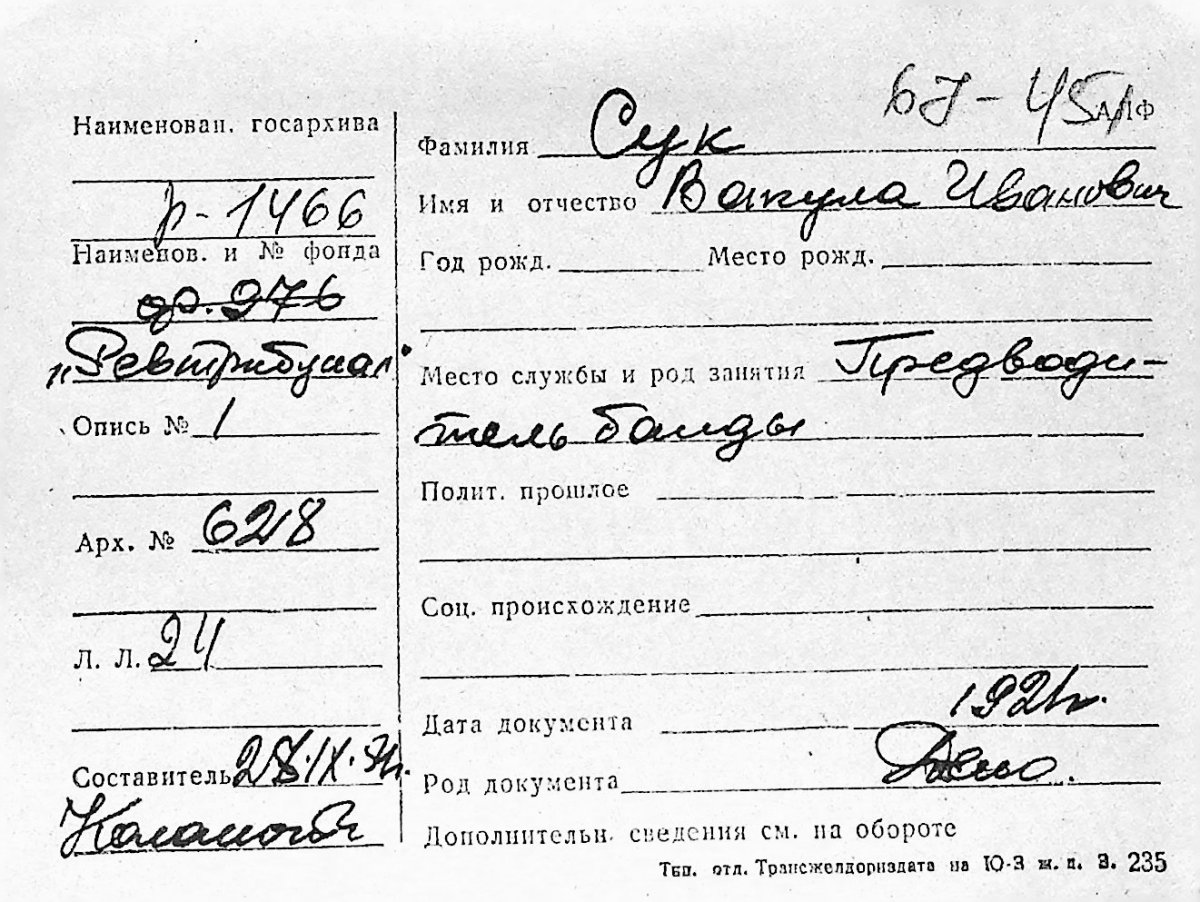 Наименован. госархива
р-1466
Наименов. и № фонда
ф. 976
„Ревтрибунал"
Опись № 1
Арх. № 628
Л. Л. 24
Составитель 28.IX.
67 - 45 АЛФ
Фамилия Сук
Имя и отчество Вакула Иванович
Год рожд. Место рожд.
Место службы и род занятия Предводи-
тель банды
Полит. прошлое
Соц. происхождение
Дата документа 1921г.
Род документа Дело.
Дополнительн. сведения см. на обороте
Тип. отд. Трансжелдориздата на Ю-З ж. д. З. 235